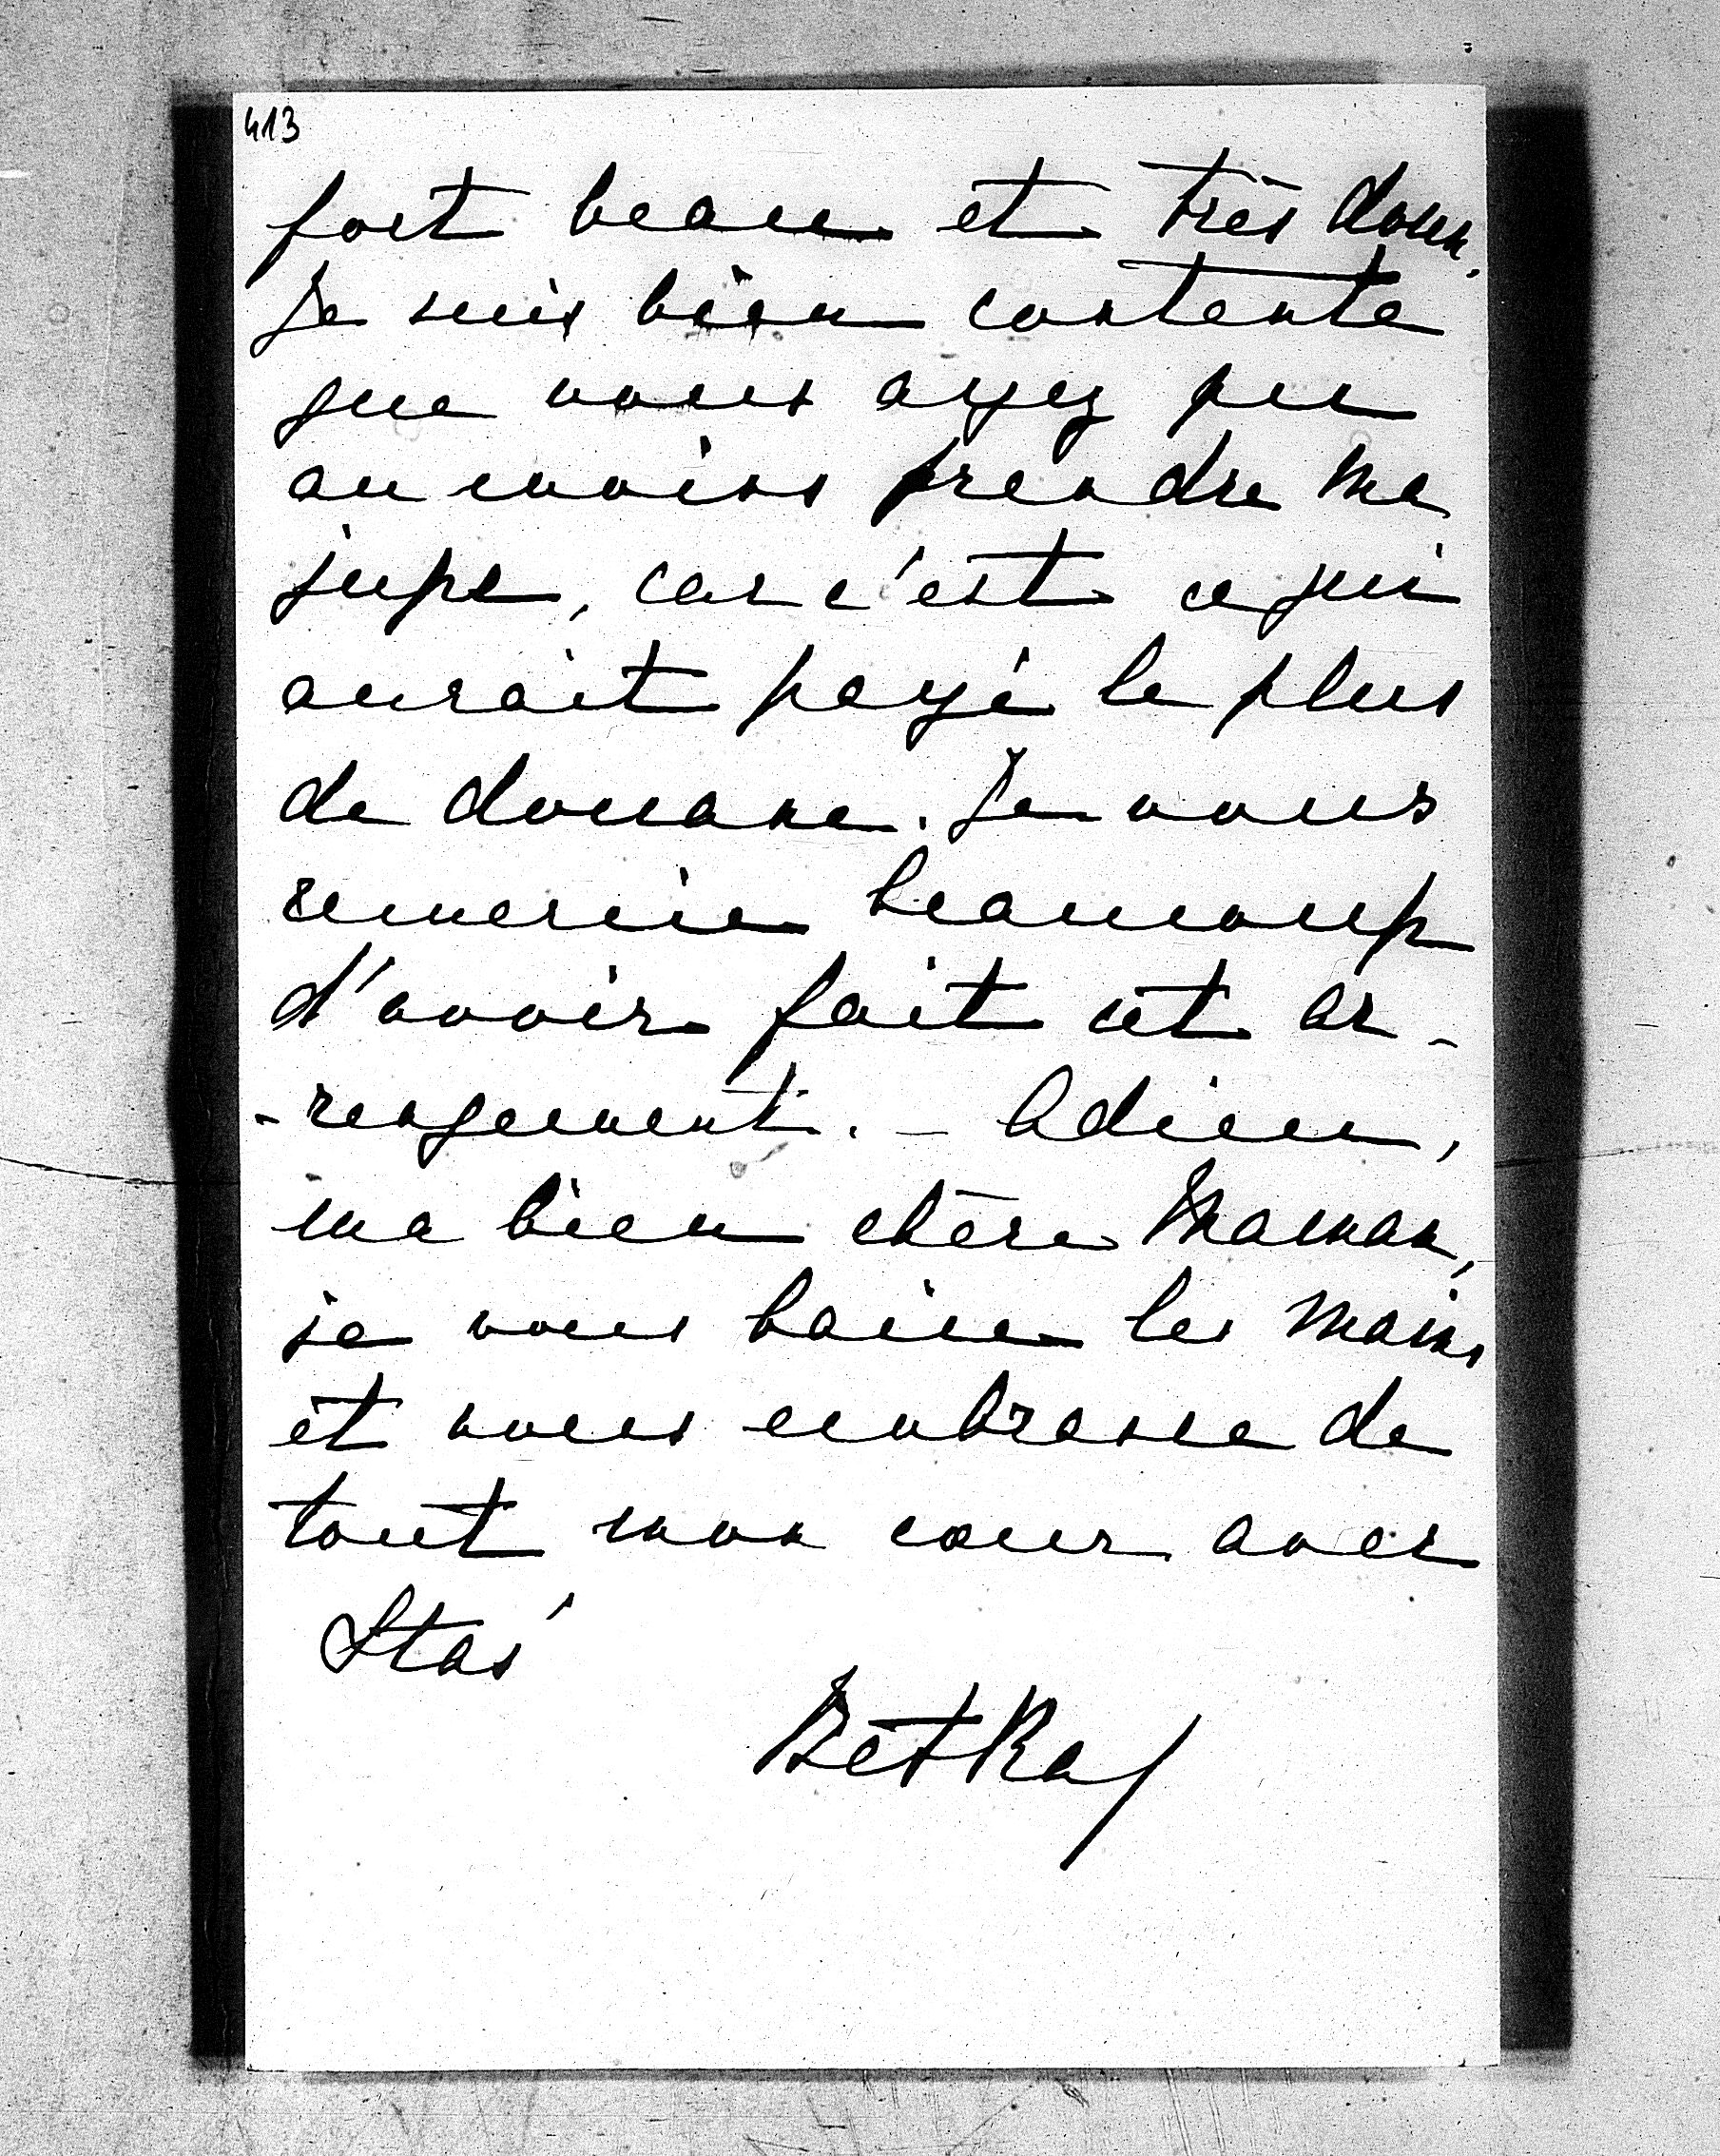 413
fort beau et très doux.
Je suis bien contente
que vous ayez pu
au moins prendre ma
jupe, car c'est ce qui
aurait payé le plus
de douane. Je vous
remercie beaucoup
d'avoir fait cet ar-
-rangement. - Adieu,
ma bien chère Maman,
je vous baise les mains
et vous embrasse de
tout mon cœur avec
Staś
Betka